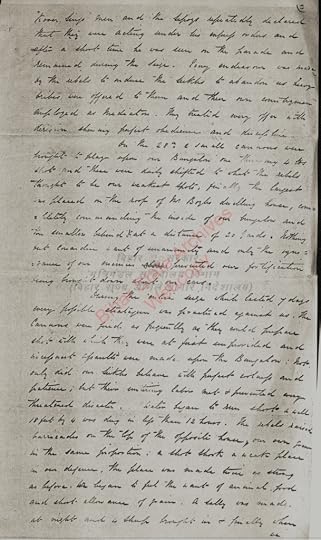 Kooer Sing's men and the sepoys repeatedly declared
that they were acting under his express orders and
after a short time he was seen on the Parade and
remained during the siege. Every endeavour was made
by the rebels to induce the Seikhs to abandon us. Heavy
bribes were offered to them and their own countrymen
employed as mediators. They treated every offer with
derision shewing perfect obedience and discipline.
On the 28th 2 small cannons were
brought to play upon our Bungalow on
shot and these were daily shifted to what the rebels
thought to be our weakest spots, finally the largest
was placed on the roof of Mr Boyle's dwelling house, com
pletely commanding the inside of our bungalow and
the smaller behind it at a distance of 20 yards. Nothing
but
of our prevented our fortification
being brought down
During the entire siege which lasted 7 days
every possible stratagem was practised against us. The
cannons were fired as frequently as they could prepare
shot with which they were at first unprovided and
incessant assaults were made upon the Bungalow. Not
only did our Seikhs behave with perfect coolness and
patience, but their untiring labor met & prevented every
threatened disaster. Water began to run short a well
18 feet by 4 was dug in less than 12 hours. The rebels raised
barricades on the top of the opposite house, our own grew
in the same proportion: a shot shook a weak place
in our defence, the place was made twice as strong
as before. We began to feel the want of animal food
and short allowance of grain. A sally was made
at night and 4 sheep brought in & finally when
we
Bihar State Archives